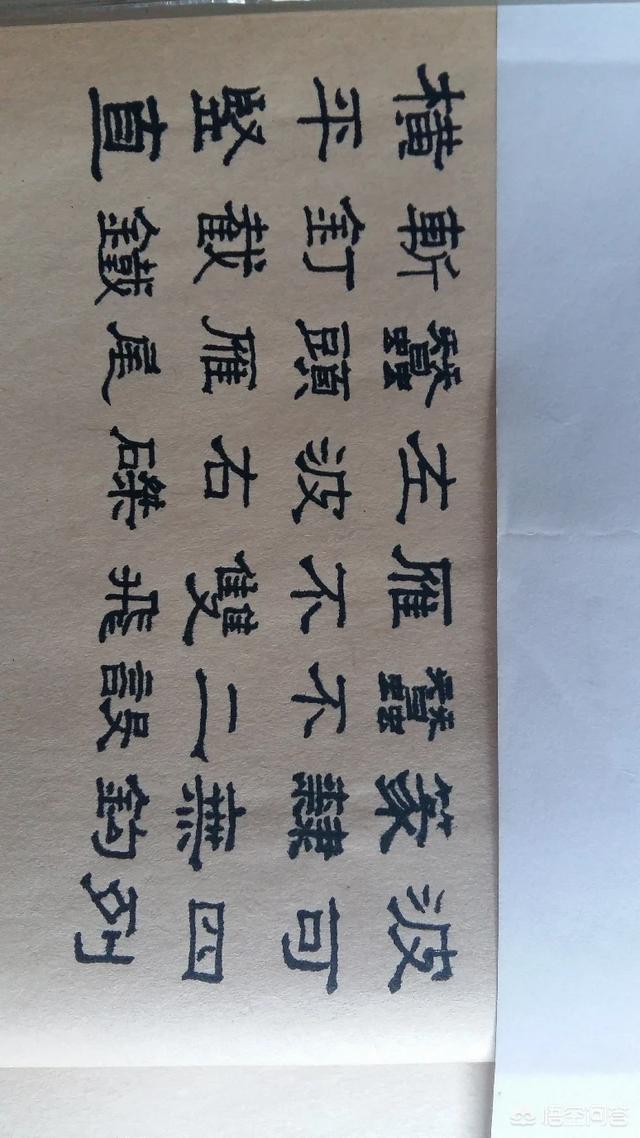 橫平豎直
斬釘截鐵
蠶頭雁尾
左波右磔
雁不雙飛
蠶不二設
篆隸無鈎
波可四列
悟空问答